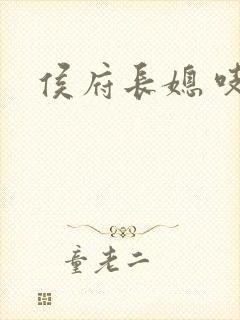 侯府長媳
童老二